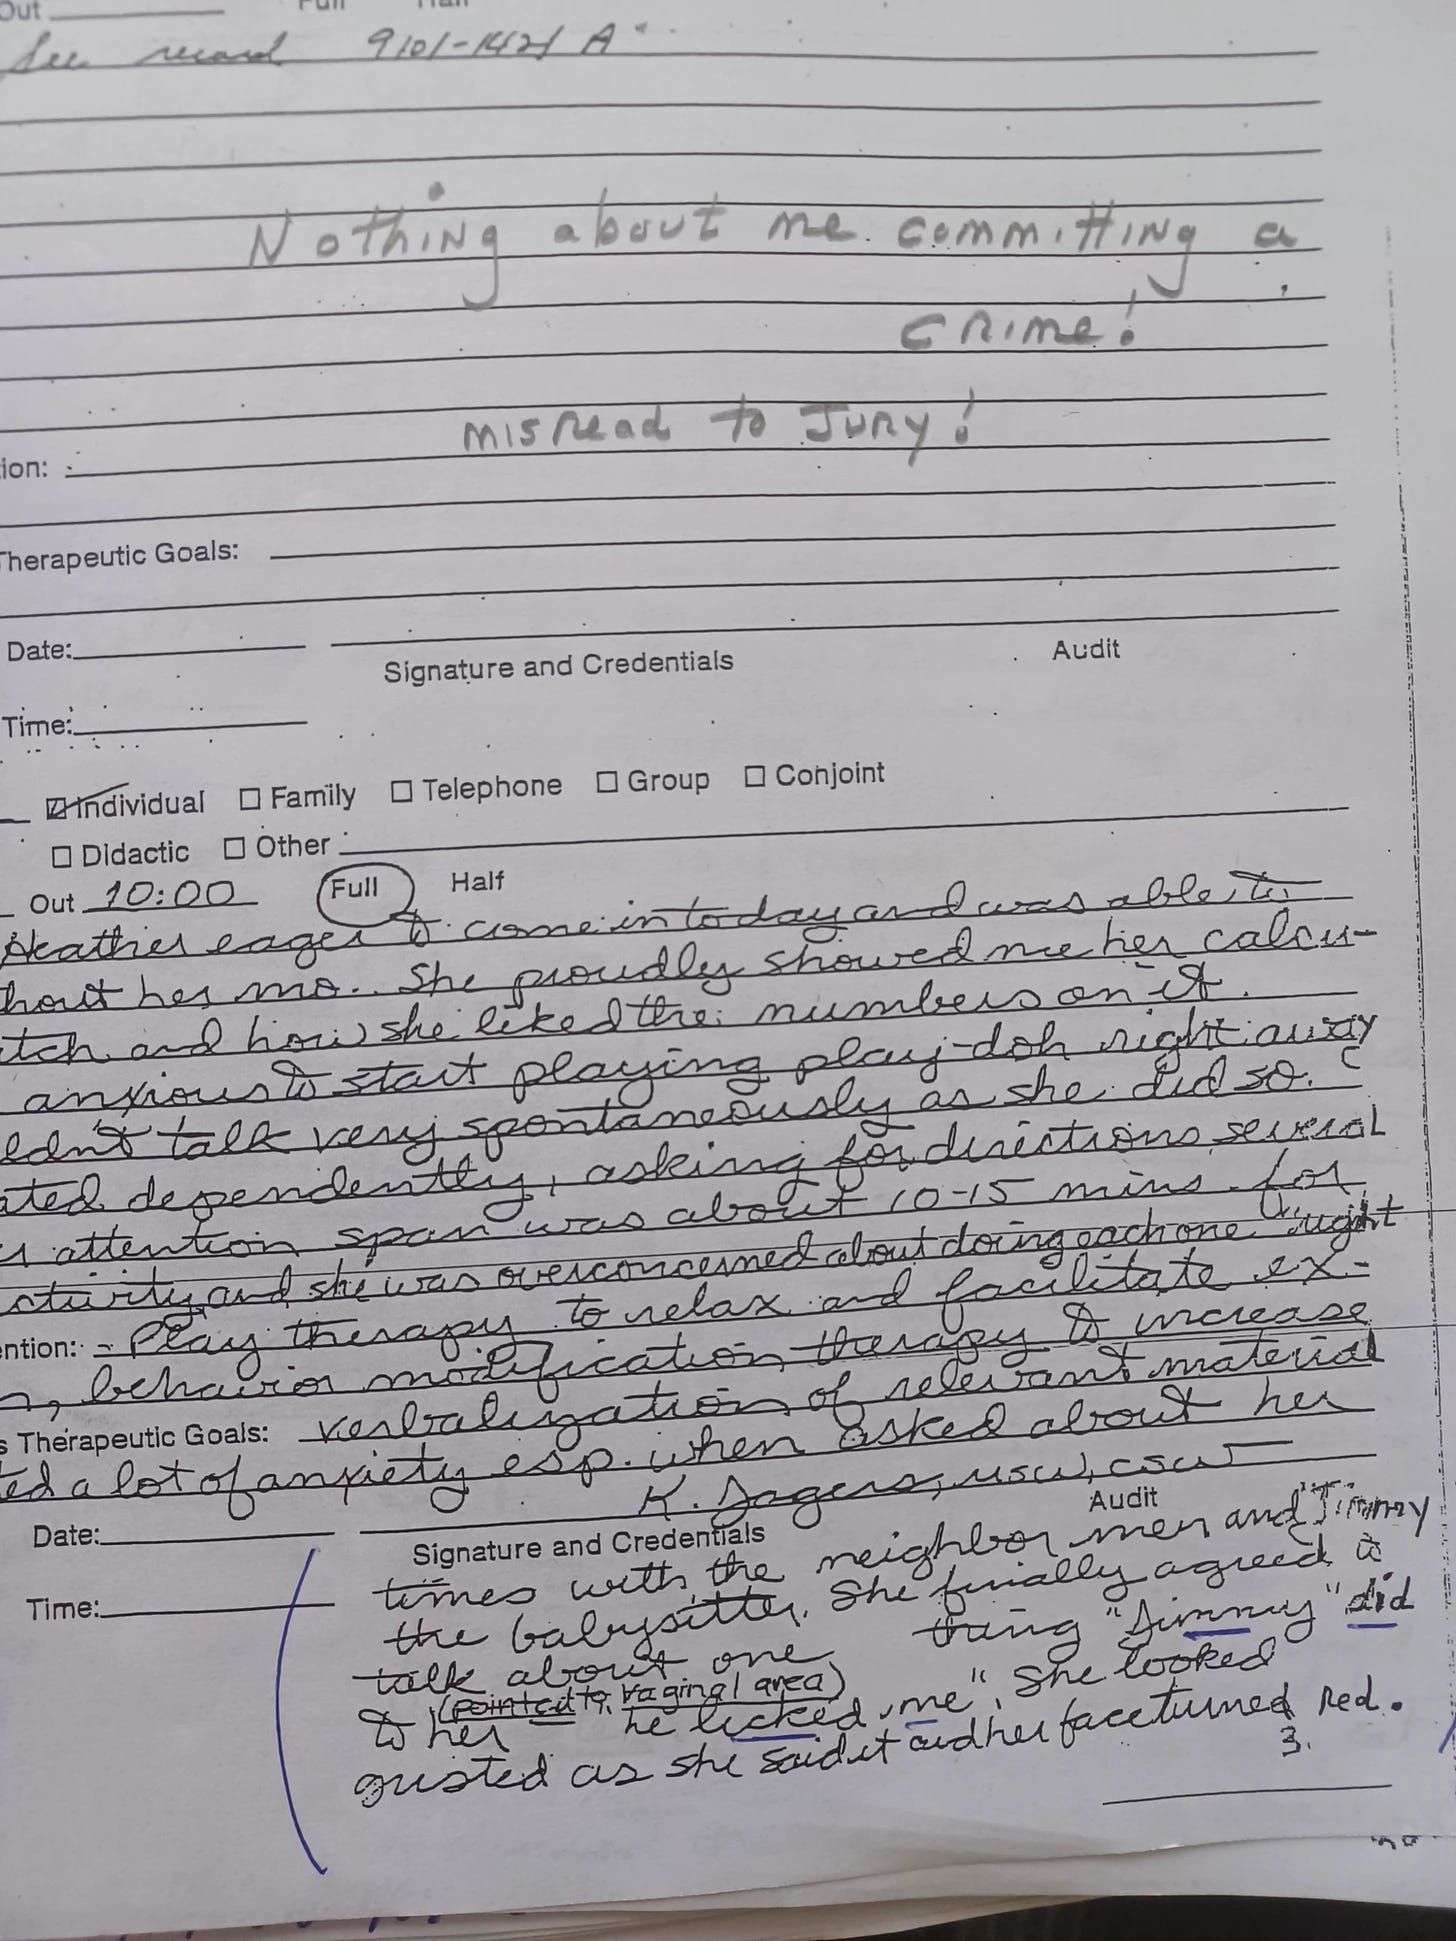 Out
See record 9101-1421 A
Nothing about me committing a
crime!
misread to Jury!
ion:
Therapeutic Goals:
Date:
Signature and Credentials Audit
Time:
Individual Family Telephone Group Conjoint
Didactic Other
Out 10:00 Full Half
Heather eager to come in today and was able to
hout her mo. She proudly showed me her calcu-
tch and how she liked the numbers on it.
anxious to start playing play-doh right away
ldn't talk very spontaneously as she did so.
ated dependently, asking for directions several
attention span was about 10-15 mins. for
ctivity and she was overconcerned about doing each one "right
ention: - Play therapy to relax and facilitate ex-
n, behavior modification therapy to increase
s Therapeutic Goals: verbalization of relevant material
ted a lot of anxiety esp. when asked about her
K. Sagers, MSW, CSW
Date: Signature and Credentials Audit
times with the neighbor men and "Jimmy
Time:
the babysitter. She finally agreed to
talk about one thing "Jimmy" did
(pointed to vaginal area)
to her he licked me". She looked
gusted as she said it and her face turned red.
3.